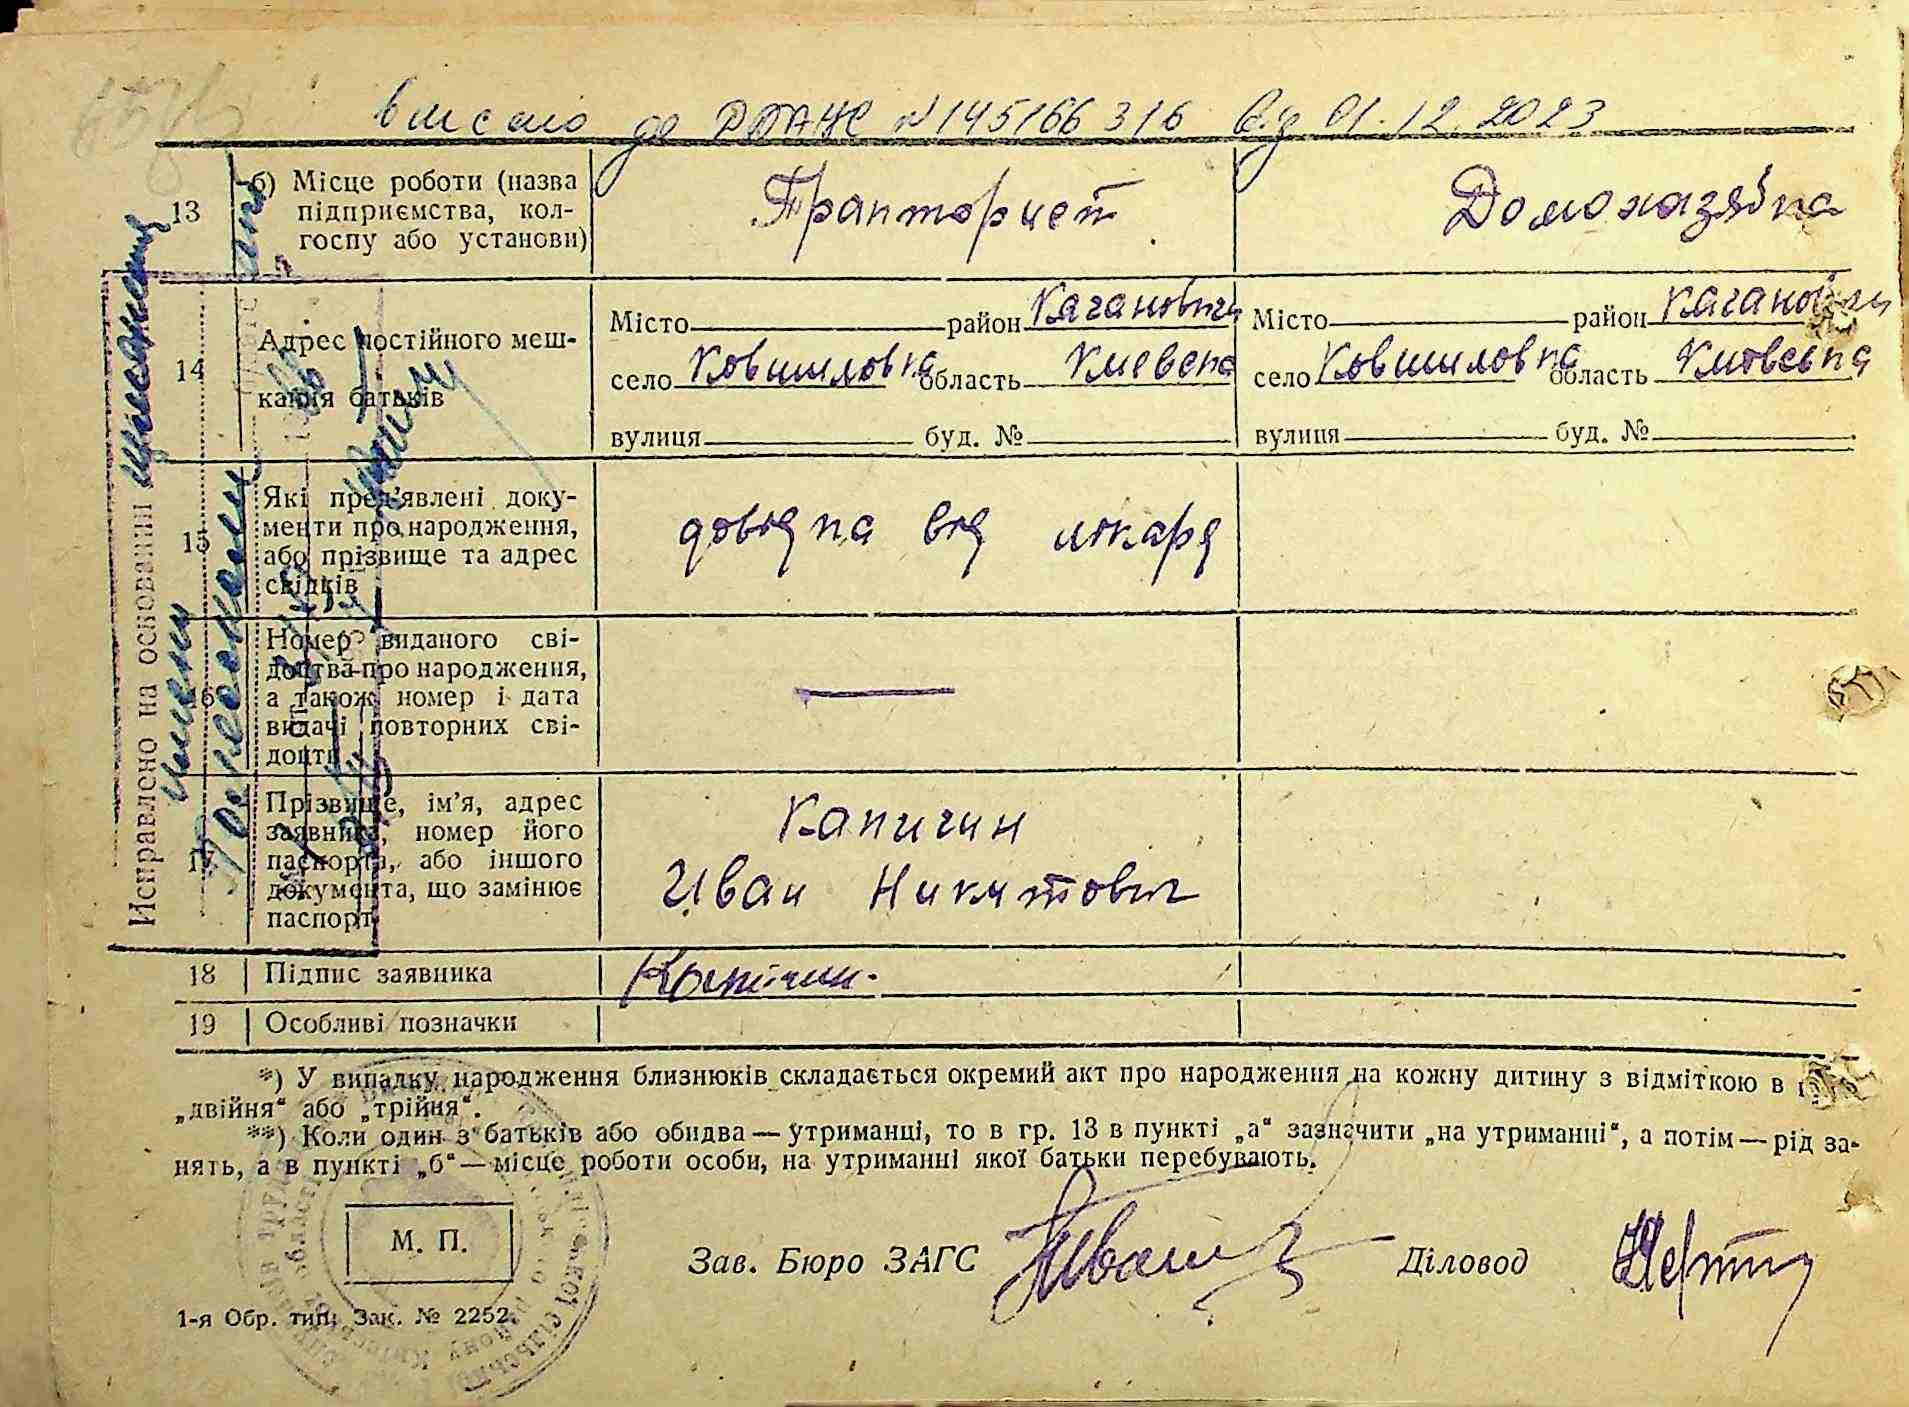 внесено до РФАЖС № 145166316 від 01.12.2023
13
б) Місце роботи (назва
підприємства, кол-
госпу або установи)
Трапторист
Домохазяйка
14
Адрес постійного меш-
кання батьків
Місто район Каганович
село Ковшиловка область Киевска
вулиця буд. №
Місто район Каганович
село Ковшиловка область Киевська
вулиця буд. №
15
Які пред'явлені доку-
менти про народження,
або прізвище та адрес
свідків
довідка від лікаря
16
Номер виданого сві-
доцтва про народження,
а також номер і дата
видачі повторних сві-
доцтв
—
17
Прізвище, ім'я, адрес
заявника, номер його
паспорта, або іншого
документа, що замінює
паспорт
Капичин
Иван Никитович
18
Підпис заявника
Капичин.
19
Особливі позначки
Исправлено на основании
*) У випадку народження близнюків складається окремий акт про народження на кожну дитину з відміткою в
„двійня“ або „трійня“.
**) Коли один з батьків або обидва — утриманці, то в гр. 13 в пункті „а“ зазначити „на утриманні“, а потім — рід за-
нять, а в пункті „б“ — місце роботи особи, на утриманні якої батьки перебувають.
М. П.
Зав. Бюро ЗАГС
Діловод
1-я Обр. тип. Зак. № 2252.